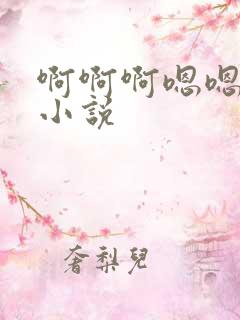 啊啊啊嗯嗯
小说
奢梨兒